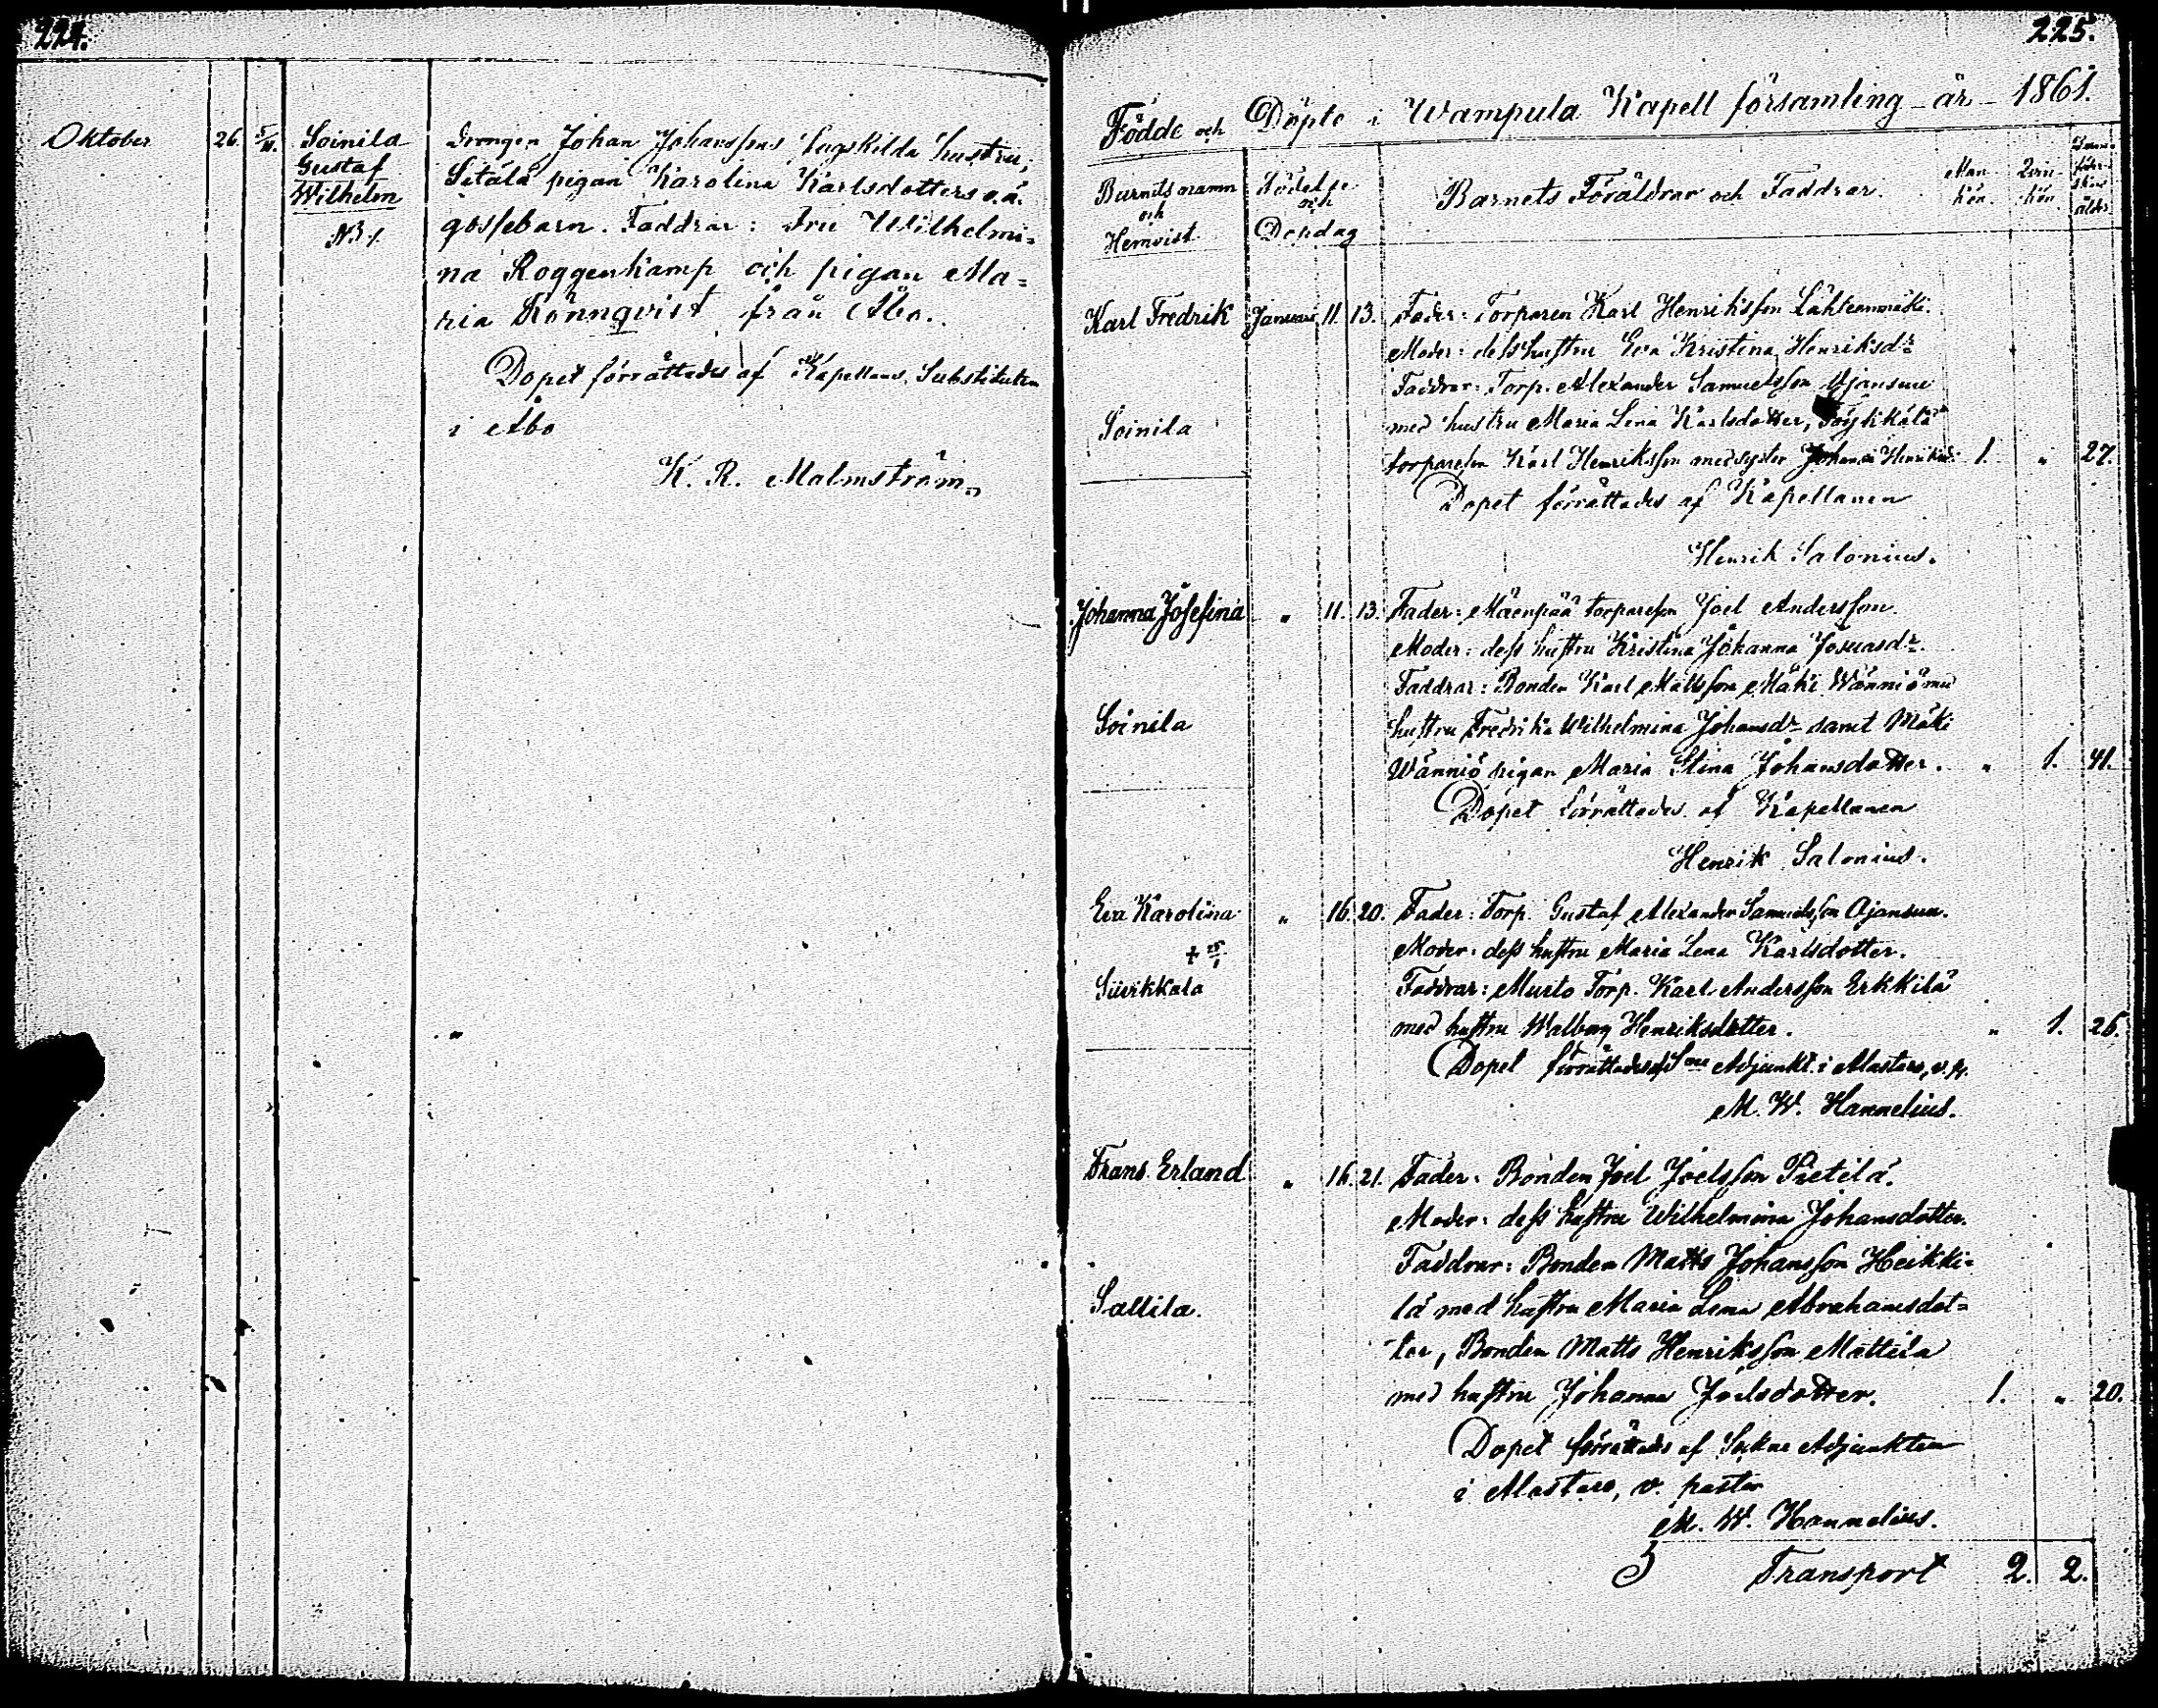 224.
Oktober 26. 5/11. Soinila
Gustaf
Wilhelm
N:3 /.
Drengen Johan Johanssons lagskilda hustru,
Sitälä pigan Karolina Karlsdotters o.ä.
gossebarn. Faddrar: Fru Wilhelmi=
na Roggenkamp och pigan Ma=
ria Rönnqvist från Åbo.
Dopet förrättades af Kapellans Substituten
i Åbo
K. R. Malmström.
225.
Födde och Döpte i Wampula Kapell församling år 1861.
Barnets namn och Hemvist
Födelse och Dopdag
Barnets Föräldrar och Faddrar.
Man kön. Qvin kön. ålder
Karl Fredrik Januari 11. 13. Fader: Torparen Karl Henriksson Lähteenmäki.
Moder: dess hustru Eva Kristina Henriksdr
Faddrar: Torp. Alexander Samuelsson Ojansuu
Soinila med hustru Maria Lena Karlsdotter,
torpareson Karl Henriksson med syster Johanna Henriksd: 1. " 27.
Dopet förrättades af Kapellanen
Henrik Salonius.
Johanna Josefina " 11. 13. Fader: Mäenpää torpareson Joel Andersson.
Moder: dess hustru Kristina Johanna Josuasdr.
Faddrar: Bonden Karl Mattsson Mäki Wänniö med
Soinila hustru Fredrika Wilhelmina Johansdr samt Mäki
Wänniö pigan Maria Stina Johansdotter. " 1. 41.
Dopet förrättades af Kapellanen
Henrik Salonius.
Eva Karolina " 16. 20. Fader: Torp. Gustaf Alexander Samuelsson Ojansuu.
+ 25/1 Moder: dess hustru Maria Lena Karlsdotter.
Siivikkala Faddrar: Murto Torp. Karl Andersson Erkkilä
med hustru Walborg Henriksdotter. " 1. 26.
Dopet förrättades af Sne Adjunkt. i Alastaro, v. p.
M. W. Hannelius.
Frans Erland " 16. 21. Fader: Bonden Joel Joelsson Pietilä.
Moder: dess hustru Wilhelmina Johansdotter.
Faddrar: Bonden Matts Johansson Heikki=
Sallila. lä med hustru Maria Lena Abrahamsdot=
ter, Bonden Matts Henriksson Mattila
med hustru Johanna Joelsdotter. 1. " 20.
Dopet förrättades af Sockne Adjunkten
i Alastaro, v. pastor
M. W. Hannelius.
Transport 2. 2.